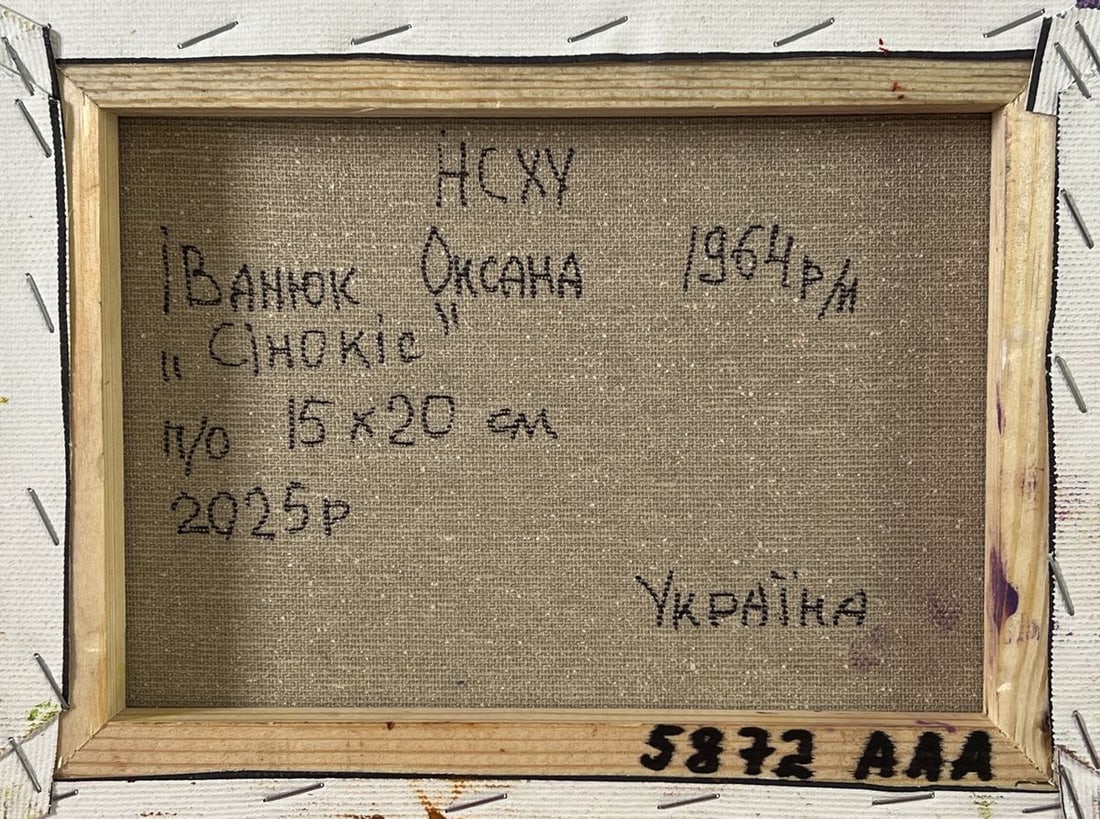 НСХУ
Іванюк Оксана 1964 р/н
„Сінокіс"
п/о 15 х 20 см
2025р
Україна
5872 ААА